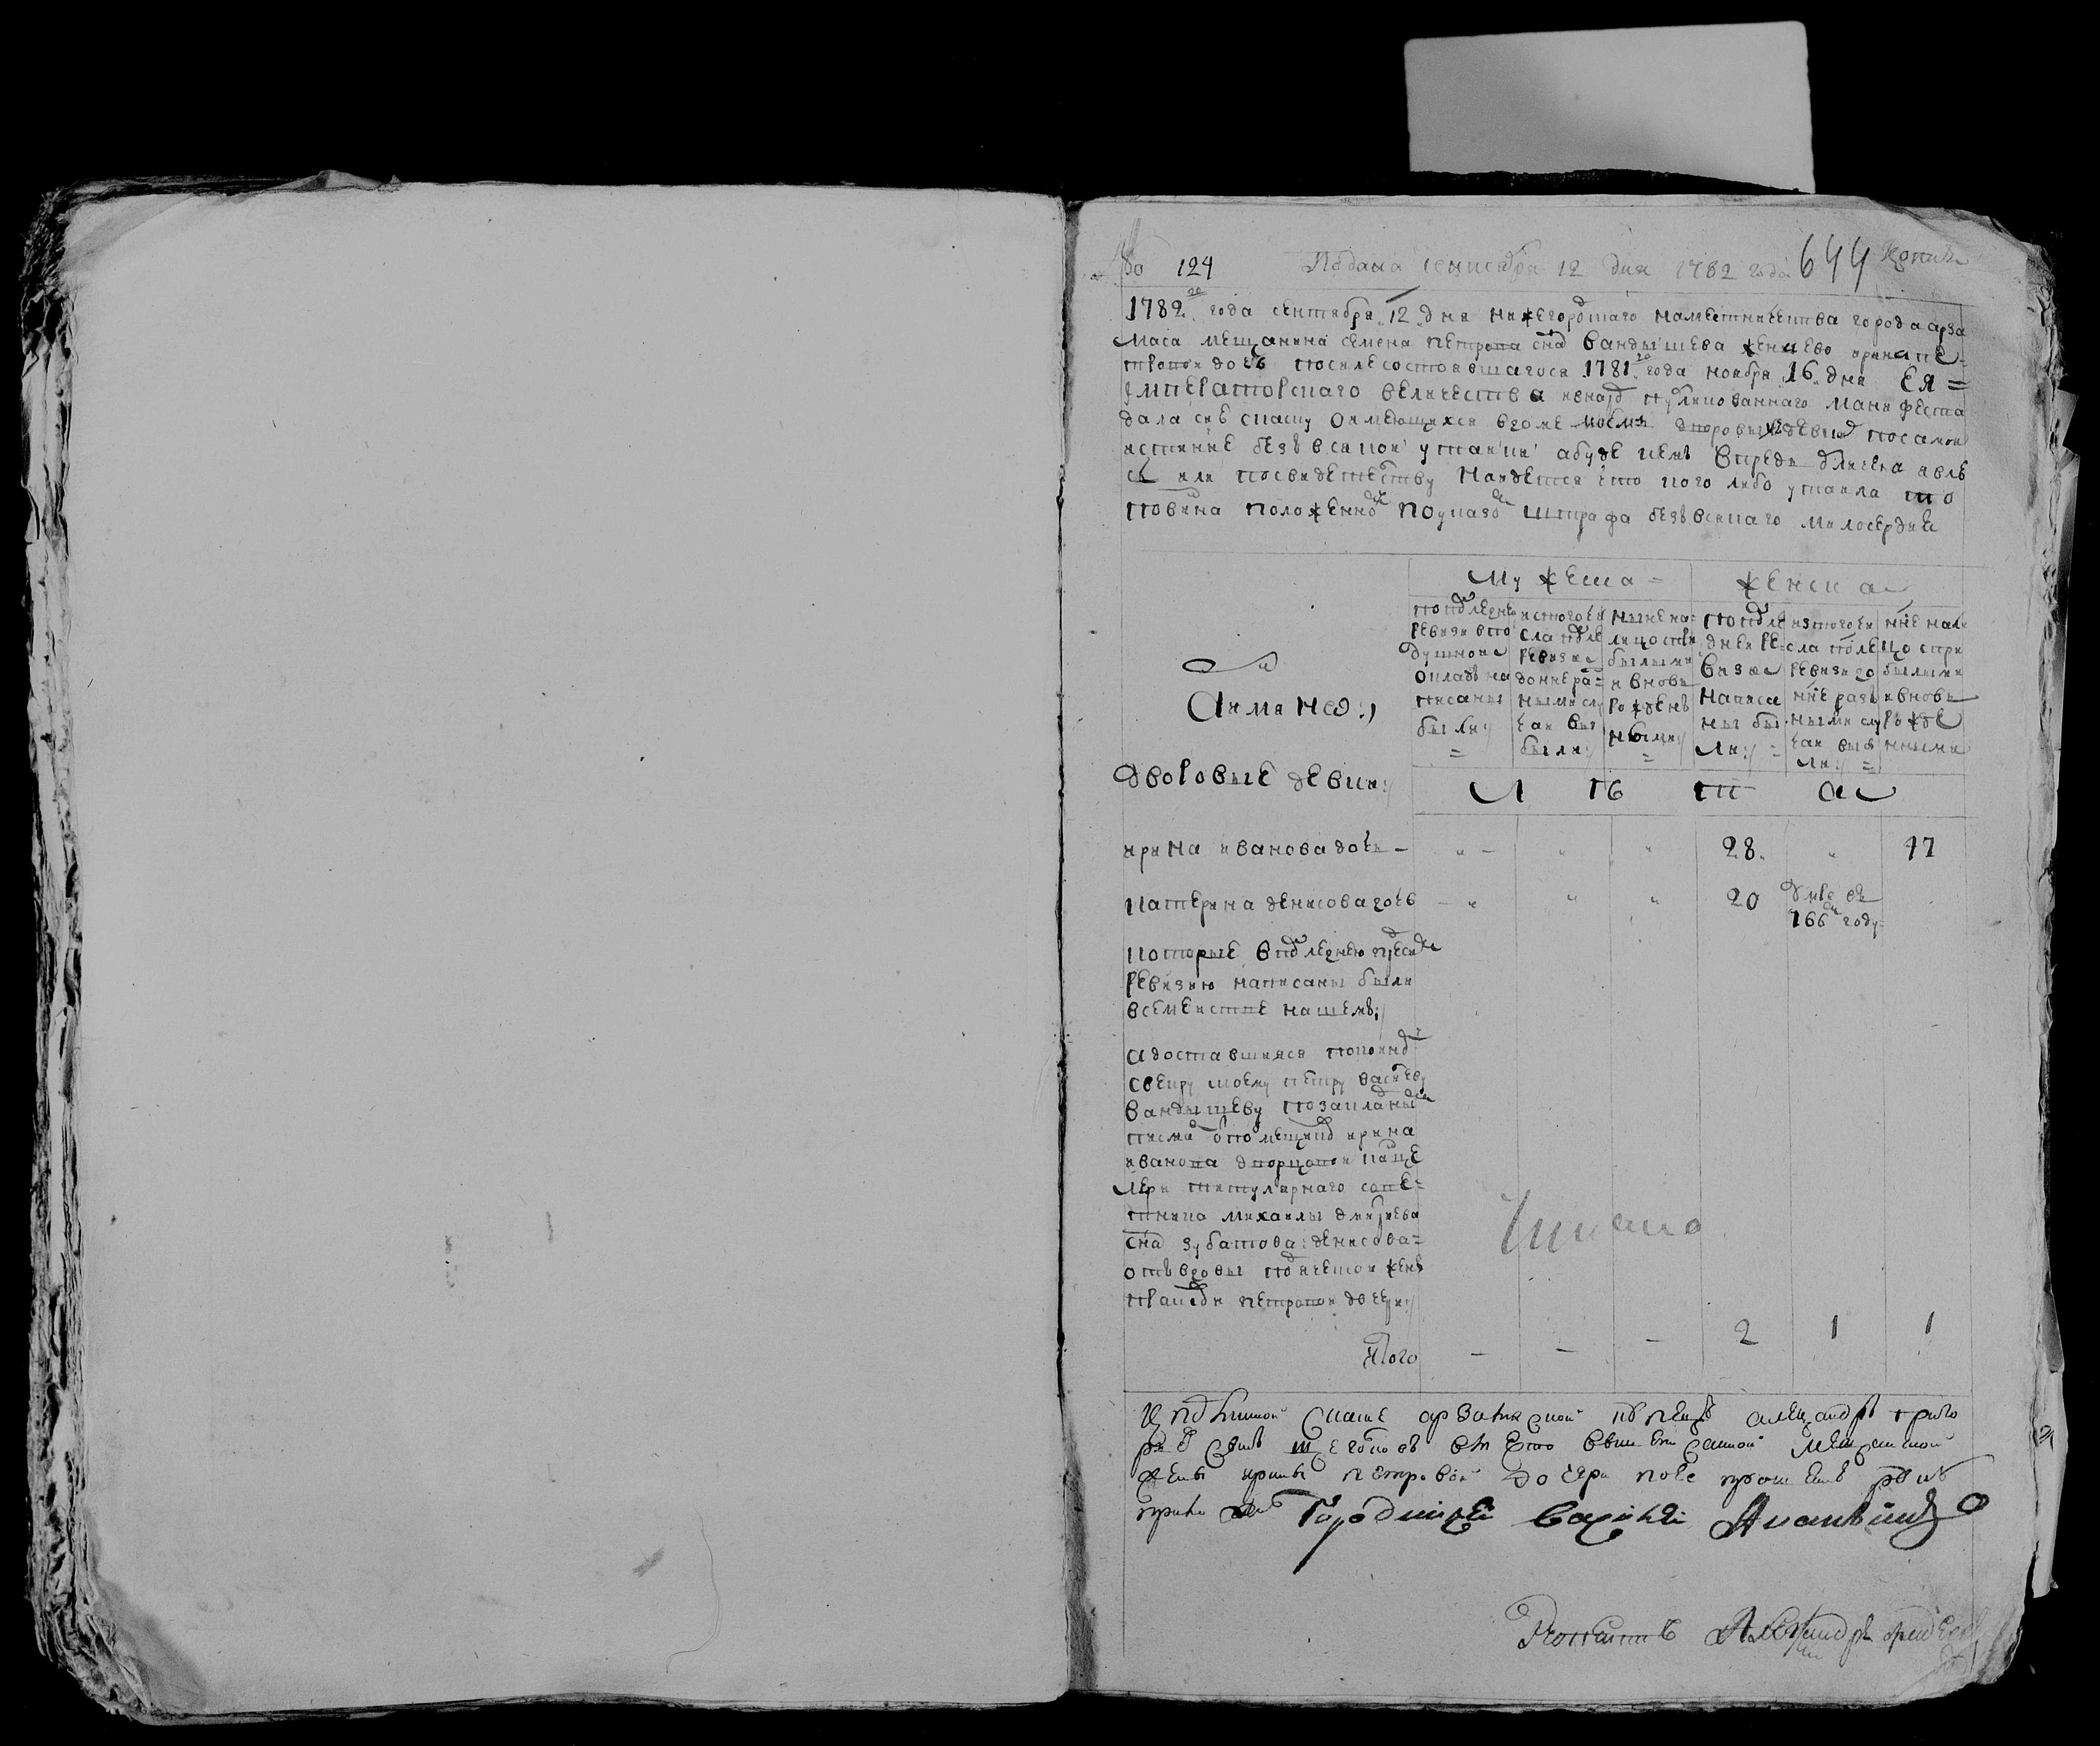 № 124 Подана сентября 12 дня 1782 года 644 Копия
1782 го года сентября 12 дня нижегородцкаго наместничества города арза
маса мещанина семена петрова сна вандышева жена ево ирина пе
трова дочь посиле состоявшагося 1781 го года ноября 16 дня ея =
императорскаго величества изнард публикованнаго манифеста
дала сию скаску о имеющихся вдоме моем дворовых девках посамои
истинне безъ всякои утаики а буде чемъ впредь обличена явлю
сь или посвидетелству наидется что кого либо утаила то
повина положенному поуказом штрафа безъ всякаго милосердия
Мужеска = женска
а имянно:
поподледнеи ревизи вподушнои окладъ написаны были
изтого числа после ревизи до нне разными случаи выбыли
ныне налицо сприбылыми и вновь рожденными
поподледнеи ревизи написаны были
изтого числа после ревизи до нне разными случаи выбыли
нне налицо сприбылыми и вновь рожденными
дворовые девки:
л ѣ т а
ирина иванова дочь - 28 47
катерина денисова дочь - 20 умре въ 766 м году
которые в подледнею пред сим
ревизию написаны были
всемеистве нашемъ;
а доставшияся покоиному
свекру моему петру васильеву
вандышеву позакладным
писмам от помещиков ирина
иванова дворцовои канце
лери титулярнаго сове=
тника михаилы дмитриева
сна зубатова: денисова=
отъ вдовы подьяческои жены
праскови петровои дочери
Читал
Итого - - - 2 1 1
К подлиннои скаске арзамаскои купецъ александръ григо
рьев сынъ щеголев вместо вышеписаннои мещанскои
жены ирины петровои дочери пое прошению руку
приложил Городничей Василей
Копиистъ Александръ